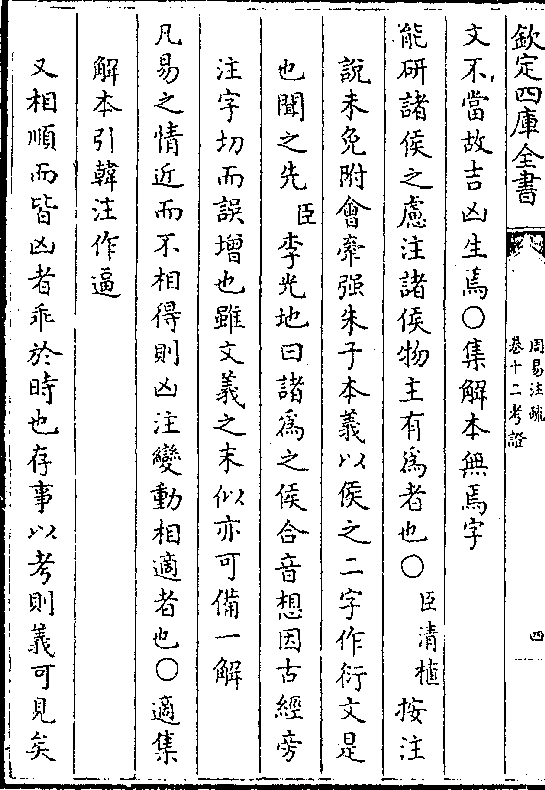 欽定四庫全書
周易注疏
卷十二考證
四
文不當故吉凶生焉○集解本無焉字
能研諸侯之慮注諸侯物主有為者也○臣清植按注
說未免附會牽强朱子本義以侯之二字作衍文是
也聞之先臣李光地曰諸為之侯合音想因古經旁
注字切而誤增也雖文義之末似亦可備一解
凡易之情近而不相得則凶注變動相適者也○適集
解本引韓注作逼
又相順而皆凶者乖於時也存事以考則義可見矣